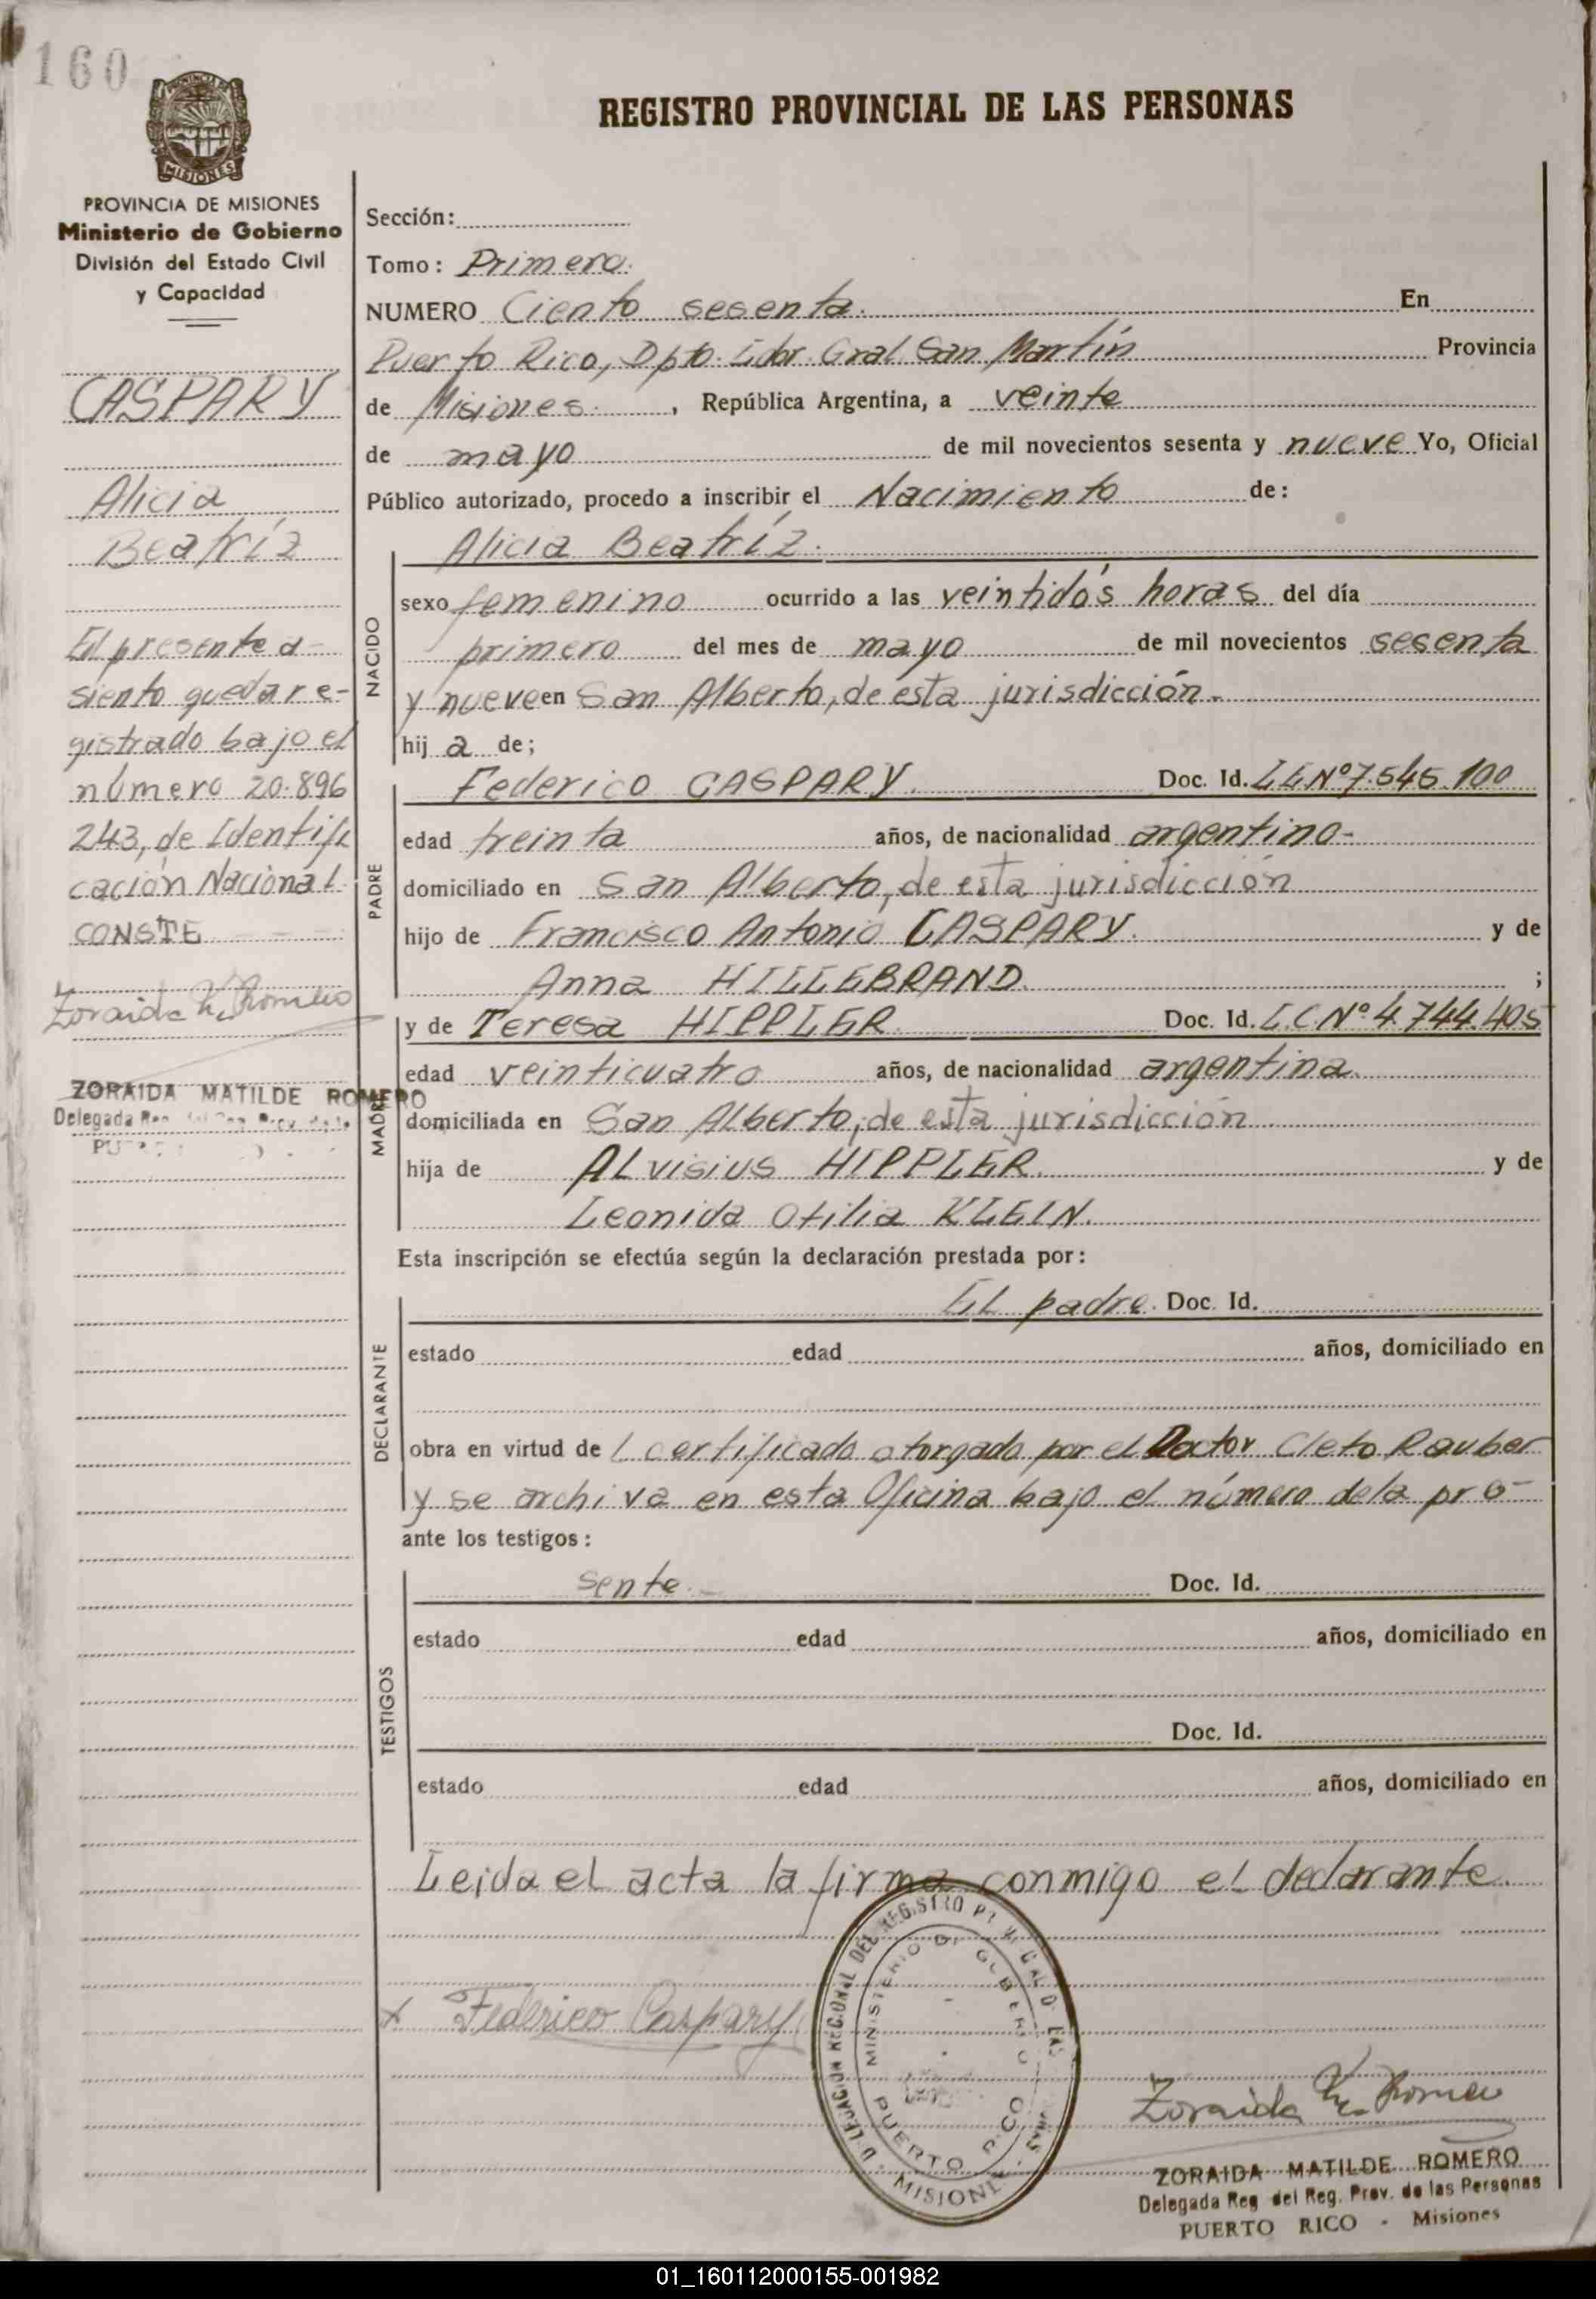 160
REGISTRO PROVINCIAL DE LAS PERSONAS
MISIONES
PROVINCIA DE MISIONES
Ministerio de Gobierno
División del Estado Civil
y Capacidad
CASPARY
Alicia
Beatríz
El presente a-
siento queda re-
gistrado bajo el
número 20.896
243, de Identifi
cación Nacional
CONSTE
Zoraida M. Romero
ZORAIDA MATILDE ROMERO
Delegada Reg. del Reg. Prov. de las
Sección:
Tomo: Primero.
NUMERO Ciento sesenta. En
Puerto Rico, Dpto. Ldor. Gral. San Martín Provincia
de Misiones. , República Argentina, a veinte
de mayo de mil novecientos sesenta y nueve Yo, Oficial
Público autorizado, procedo a inscribir el Nacimiento de:
NACIDO
Alicia Beatríz.
sexo femenino ocurrido a las veintidós horas del día
primero del mes de mayo de mil novecientos sesenta
y nueve en San Alberto, de esta jurisdicción.
hij a de;
PADRE
Federico CASPARY. Doc. Id. L.E.Nº 7.545.100
edad treinta años, de nacionalidad argentino-
domiciliado en San Alberto, de esta jurisdicción
hijo de Francisco Antonio CASPARY. y de
Anna HILLEBRAND. ;
MADRE
y de Teresa HIPPLER. Doc. Id. L.C.Nº 4.744.405
edad veinticuatro años, de nacionalidad argentina.
domiciliada en San Alberto, de esta jurisdicción
hija de ALvisius HIPPLER. y de
Leonida Otilia KLEIN.
Esta inscripción se efectúa según la declaración prestada por:
DECLARANTE
EL padre. Doc. Id.
estado edad años, domiciliado en
obra en virtud de l certificado otorgado por el Doctor Cleto Rauber
y se archiva en esta Oficina bajo el número de la pre-
ante los testigos:
TESTIGOS
sente.- Doc. Id.
estado edad años, domiciliado en
Doc. Id.
estado edad años, domiciliado en
Leida el acta la firma conmigo el declarante.
x Federico Caspary
MINISTERIO DE GOBIERNO
PUERTO RICO
MISIONES
Zoraida M. Romero
ZORAIDA MATILDE ROMERO
Delegada Reg del Reg. Prov. de las Personas
PUERTO RICO - Misiones
01_160112000155-001982